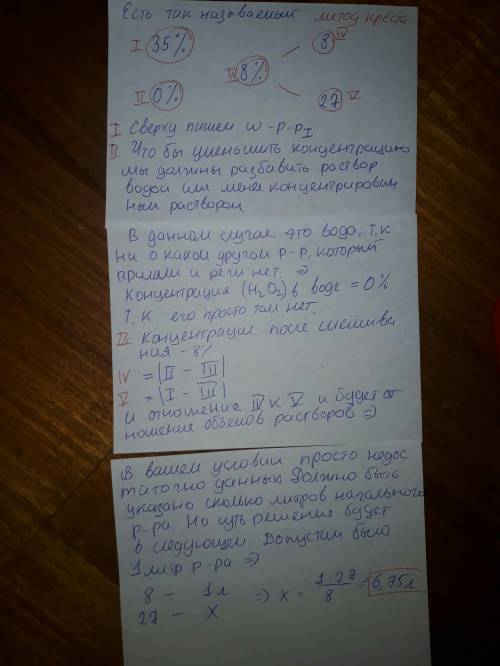 Есть так называемый метод креста
I 35% 8 IV
III 8%
II 0% 27 V
I Сверху пишем ω-р-рI
II Что бы уменьшить концентрацию
мы должны разбавить раствор
водой или менее концентрирован
ным раствором
В данном случае это вода, т.к
ни о каком другом р-р, который
и речи нет. ⇒
Концентрация (H2O2) в воде = 0%
т.к его просто там нет.
III концентрация после смешива
ния - 8%
IV = |II - III|
V = |I - III|
и отношение IV к V и будет от
ношение объемов растворов ⇒
В вашем условии просто недос
таточно данных Должно быть
указано сколько литров начального
р-ра. Но суть решения будет
в следующем. Допустим было
1 литр р-ра ⇒
8 - 1л ⇒ x = 1·27/8 = 6,75л
27 - x